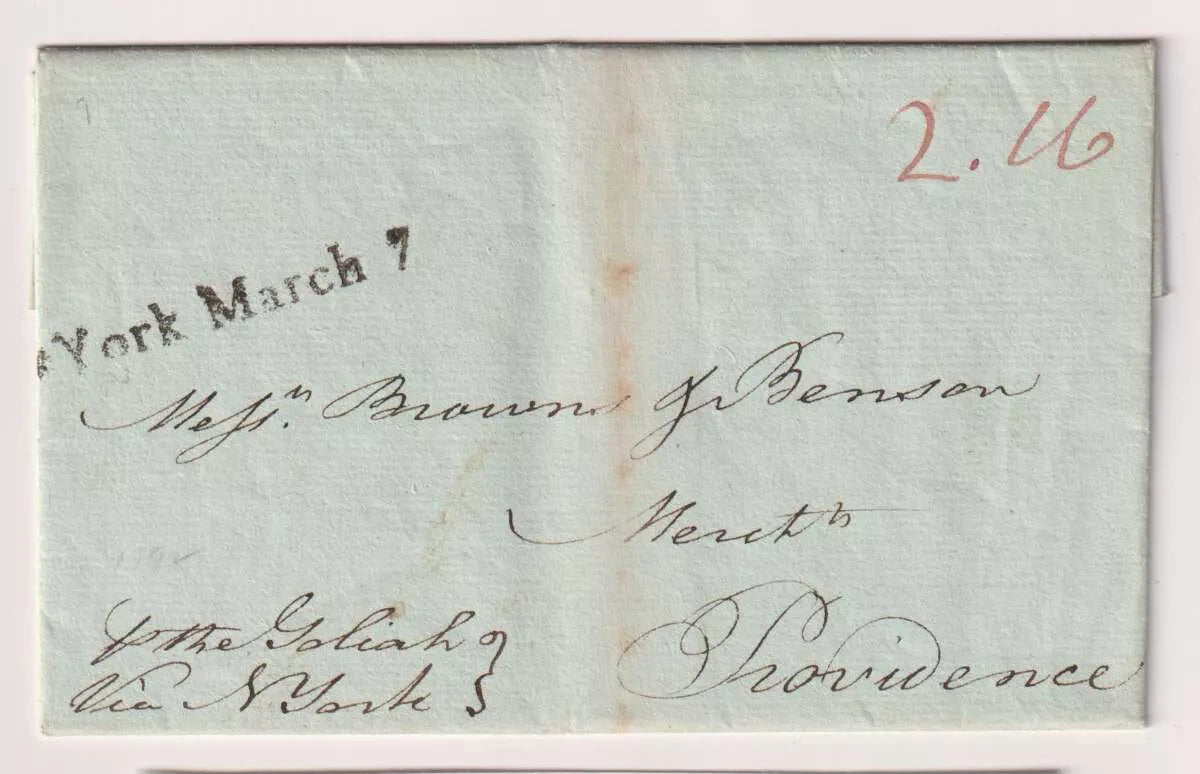 2.16
York March 7
Messrs. Brown & Benson
Merchts
Providence
p the Goliah
Via N York